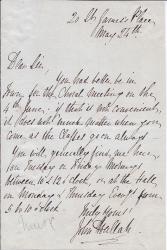 20 St. James's Place,
May 24th
Dear Sir,
You had better be in
town for the Choral Meeting on the
4th June, - if that is not convenient,
it does not much matter when you
come as the Classes go on always
You will, generally find me here,
on Tuesday or Friday Mornings
between 10 & 12 o'clock, or at the Hall,
on Monday & Thursday Evengs. from
5 to 6 o'clock.
Truly Yours
John Hullah